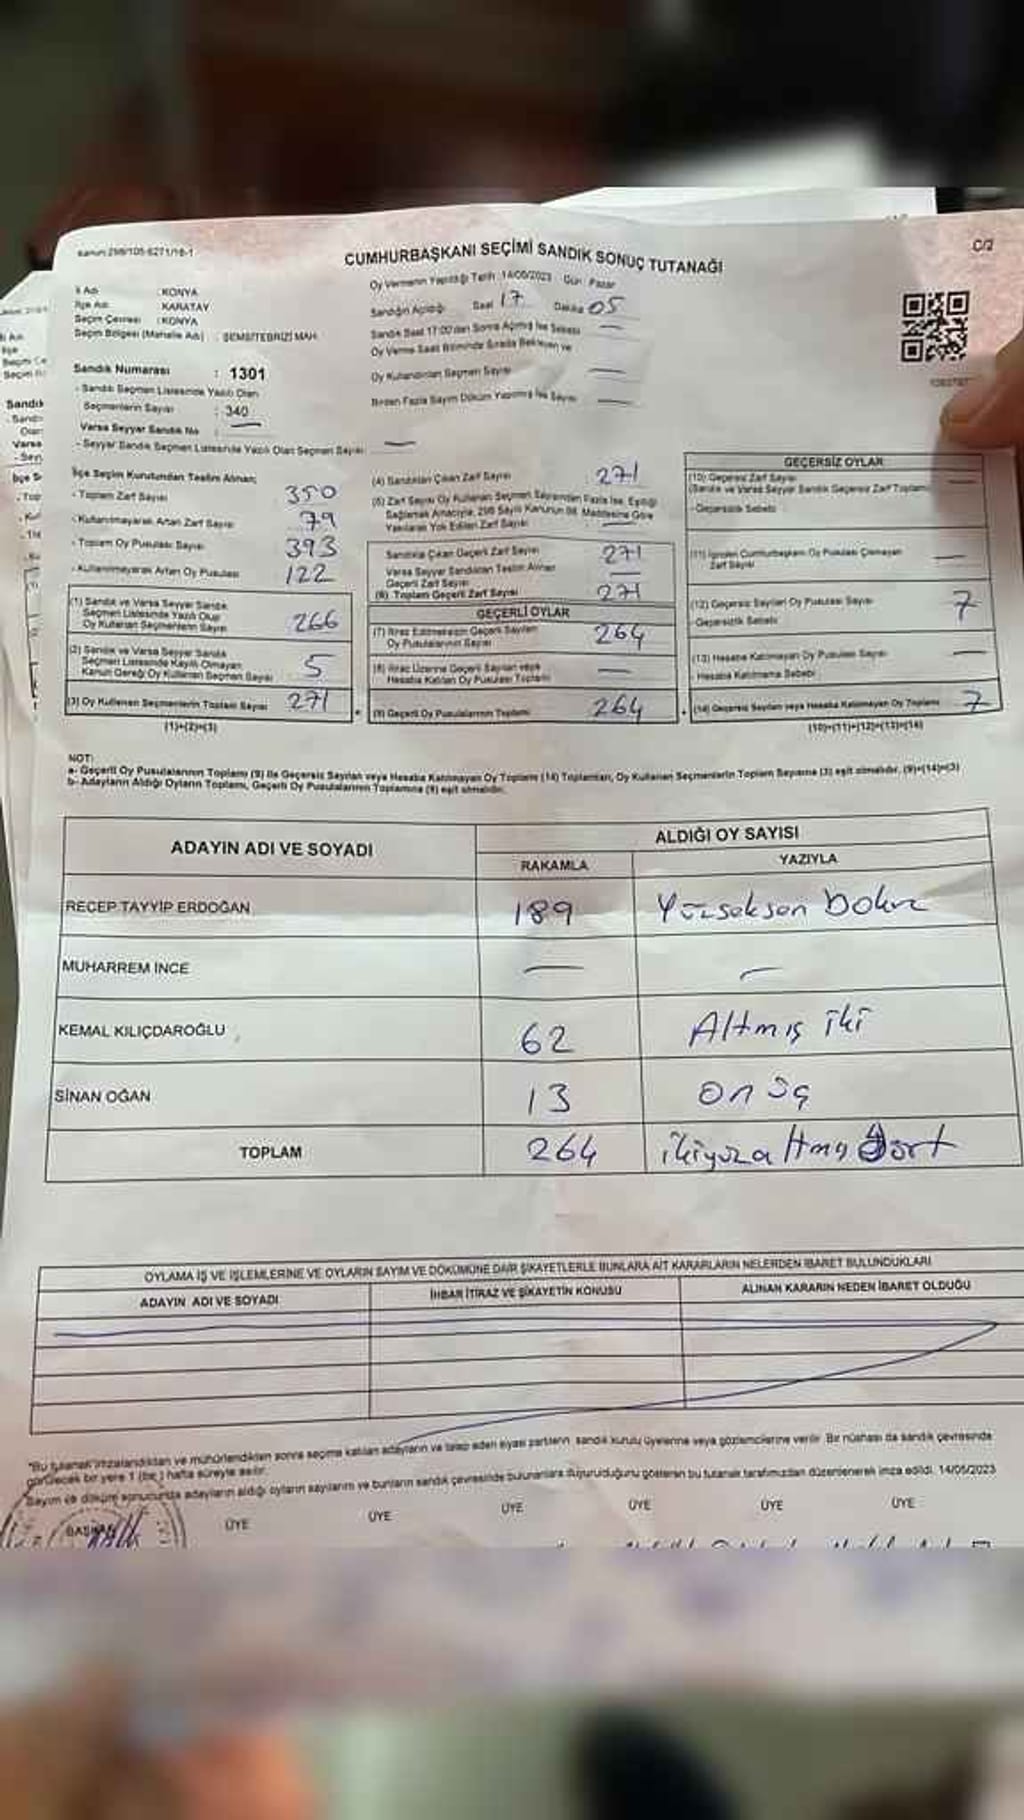 CUMHURBAŞKANI SEÇİMİ SANDIK SONUÇ TUTANAĞI
C/2
İl Adı : KONYA
İlçe Adı : KARATAY
Seçim Çevresi : KONYA
Seçim Bölgesi (Mahalle Adı) : ŞEMSİTEBRİZİ MAH.
Oy Vermenin Yapıldığı Tarih : 14/05/2023 Gün : Pazar
Sandığın Açıldığı Saat 17 Dakika 05
Sandık Saat 17:00'den Sonra Açılmış İse Sebebi —
Oy Verme Saati Bitiminde Sırada Bekleyen ve
Oy Kullandırılan Seçmen Sayısı —
Birden Fazla Sayım Döküm Yapılmış İse Sayısı —
Sandık Numarası : 1301
- Sandık Seçmen Listesinde Yazılı Olan
Seçmenlerin Sayısı : 340
Varsa Seyyar Sandık No —
- Seyyar Sandık Seçmen Listesinde Yazılı Olan Seçmen Sayısı —
İlçe Seçim Kurulundan Teslim Alınan;
- Toplam Zarf Sayısı 350
- Kullanılmayarak Artan Zarf Sayısı 79
- Toplam Oy Pusulası Sayısı 393
- Kullanılmayarak Artan Oy Pusulası 122
(1) Sandık ve Varsa Seyyar Sandık
Seçmen Listesinde Yazılı Olup
Oy Kullanan Seçmenlerin Sayısı 266
(2) Sandık ve Varsa Seyyar Sandık
Seçmen Listesinde Kayıtlı Olmayan
Kanun Gereği Oy Kullanan Seçmen Sayısı 5
(3) Oy Kullanan Seçmenlerin Toplam Sayısı 271
(1)+(2)=(3)
(4) Sandıktan Çıkan Zarf Sayısı 271
(5) Zarf Sayısı Oy Kullanan Seçmen Sayısından Fazla İse, Eşitliği
Sağlamak Amacıyla, 298 Sayılı Kanunun 98. Maddesine Göre
Yakılarak Yok Edilen Zarf Sayısı —
Sandıkta Çıkan Geçerli Zarf Sayısı 271
Varsa Seyyar Sandıktan Teslim Alınan
Geçerli Zarf Sayısı —
(6) Toplam Geçerli Zarf Sayısı 271
GEÇERLİ OYLAR
(7) İtiraz Edilmeksizin Geçerli Sayılan
Oy Pusulalarının Sayısı 264
(8) İtiraz Üzerine Geçerli Sayılan veya
Hesaba Katılan Oy Pusulası Toplamı —
(9) Geçerli Oy Pusulalarının Toplamı 264
GEÇERSİZ OYLAR
(10) Geçersiz Zarf Sayısı
(Sandık ve Varsa Seyyar Sandık Geçersiz Zarf Toplamı) —
- Geçersizlik Sebebi
(11) İçinden Cumhurbaşkanı Oy Pusulası Çıkmayan
Zarf Sayısı —
(12) Geçersiz Sayılan Oy Pusulası Sayısı 7
- Geçersizlik Sebebi
(13) Hesaba Katılmayan Oy Pusulası Sayısı —
- Hesaba Katılmama Sebebi
(14) Geçersiz Sayılan veya Hesaba Katılmayan Oy Toplamı 7
(10)+(11)+(12)+(13)=(14)
NOT:
a- Geçerli Oy Pusulalarının Toplamı (9) ile Geçersiz Sayılan veya Hesaba Katılmayan Oy Toplamı (14) Toplamları, Oy Kullanan Seçmenlerin Toplam Sayısına (3) eşit olmalıdır. (9)+(14)=(3)
b- Adayların Aldığı Oyların Toplamı, Geçerli Oy Pusulalarının Toplamına (9) eşit olmalıdır.
ADAYIN ADI VE SOYADI
ALDIĞI OY SAYISI
RAKAMLA YAZIYLA
RECEP TAYYİP ERDOĞAN 189 Yüzseksen Dokuz
MUHARREM İNCE — —
KEMAL KILIÇDAROĞLU 62 Altmış iki
SİNAN OĞAN 13 on üç
TOPLAM 264 ikiyüzaltmış dört
OYLAMA İŞ VE İŞLEMLERİNE VE OYLARIN SAYIM VE DÖKÜMÜNE DAİR ŞİKAYETLERLE BUNLARA AİT KARARLARIN NELERDEN İBARET BULUNDUKLARI
ADAYIN ADI VE SOYADI İHBAR İTİRAZ VE ŞİKAYETİN KONUSU ALINAN KARARIN NEDEN İBARET OLDUĞU
"Bu tutanak imzalandıktan ve mühürlendikten sonra seçime katılan adayların ve talep eden siyasi partilerin sandık kurulu üyelerine veya gözlemcilerine verilir. Bir nüshası da sandık çevresinde
görülecek bir yere 1 (bir) hafta süreyle asılır.
Sayım ve döküm sonucunda adayların aldığı oyların sayılarını ve bunların sandık çevresinde bulunanlara duyurulduğunu gösteren bu tutanak tarafımızdan düzenlenerek imza edildi. 14/05/2023
BAŞKAN ÜYE ÜYE ÜYE ÜYE ÜYE ÜYE